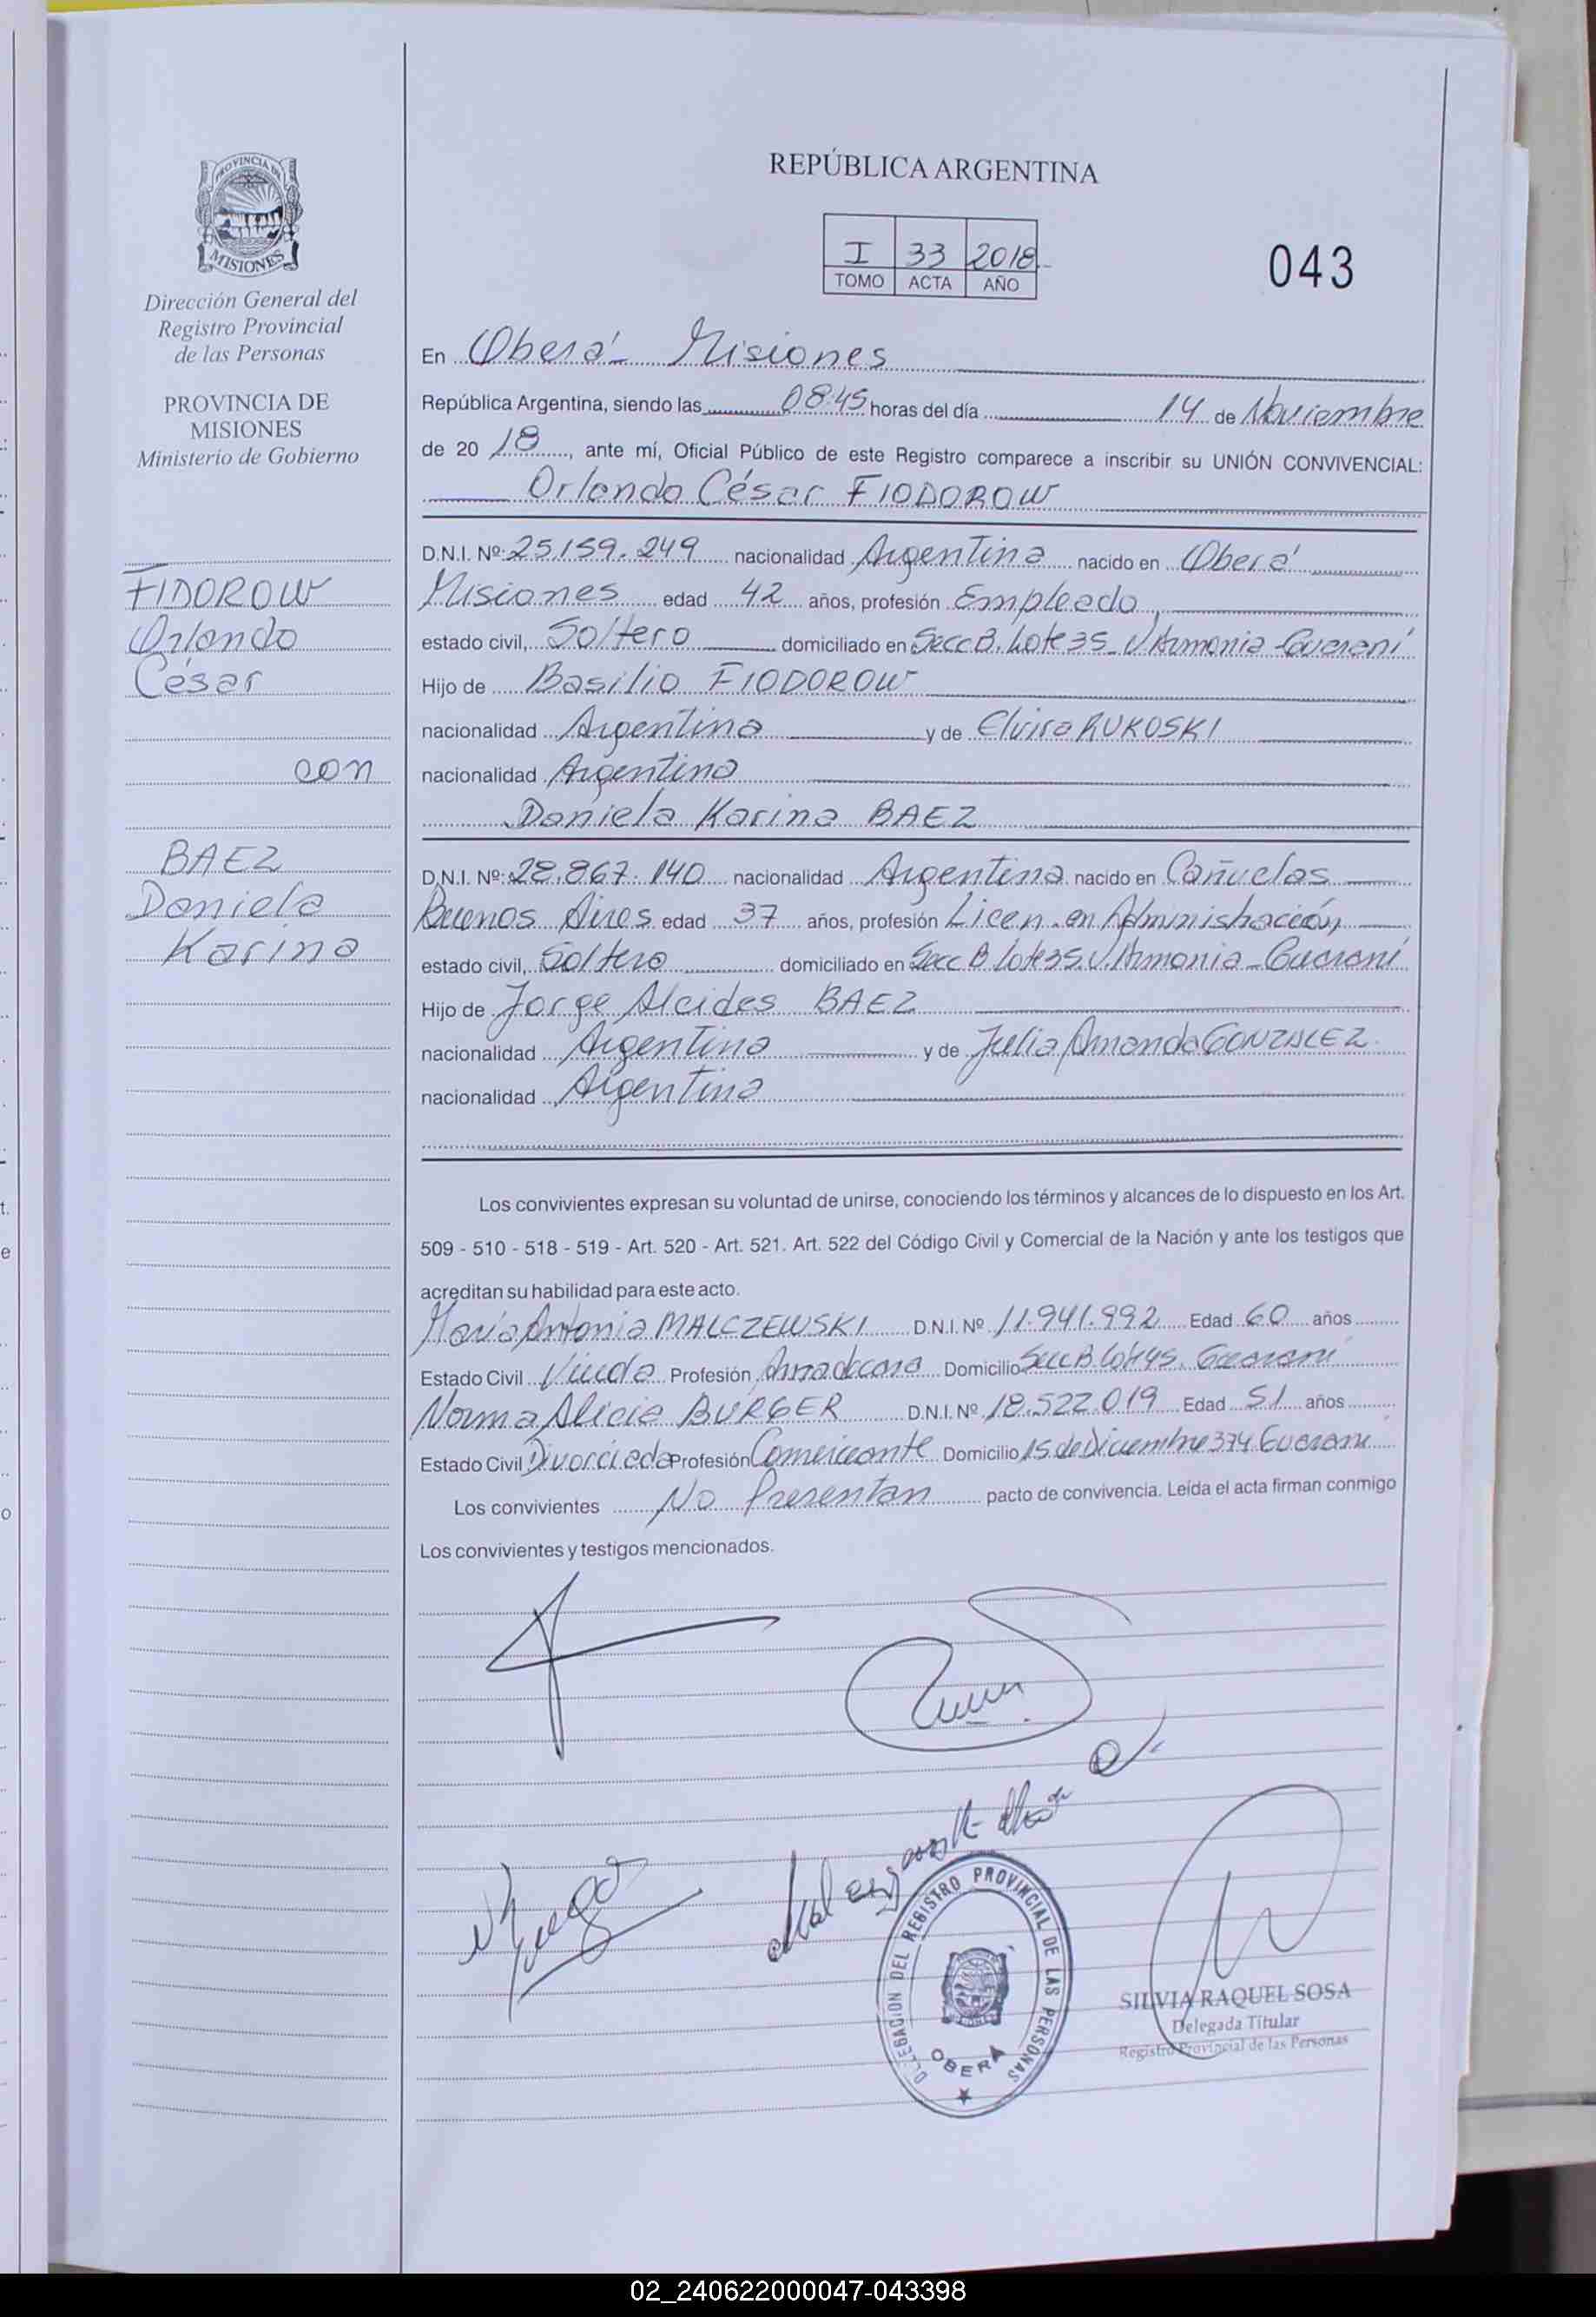 PROVINCIA DE
MISIONES
Dirección General del
Registro Provincial
de las Personas
PROVINCIA DE
MISIONES
Ministerio de Gobierno
FIDOROW
Orlando
César
con
BAEZ
Daniela
Karina
REPÚBLICA ARGENTINA
I 33 2018
TOMO ACTA AÑO
043
En Oberá - Misiones
República Argentina, siendo las 08:45 horas del día 14 de Noviembre
de 20 18, ante mí, Oficial Público de este Registro comparece a inscribir su UNIÓN CONVIVENCIAL:
Orlando César FIODOROW
D.N.I. Nº: 25.159.249 nacionalidad Argentina nacido en Oberá
Misiones edad 42 años, profesión Empleado,
estado civil, Soltero domiciliado en Secc B. Lote 35 - V. Armonia - Guaraní
Hijo de Basilio FIODOROW
nacionalidad Argentina y de Elvira RUKOSKI
nacionalidad Argentina
Daniela Karina BAEZ
D.N.I. Nº: 28.867.140 nacionalidad Argentina nacido en Cañuelas
Buenos Aires edad 37 años, profesión Licen. en Administración,
estado civil, Soltera domiciliado en Secc B. Lote 35. V. Armonia - Guaraní
Hijo de Jorge Alcides BAEZ
nacionalidad Argentina y de Julia Amanda GONZALEZ
nacionalidad Argentina
Los convivientes expresan su voluntad de unirse, conociendo los términos y alcances de lo dispuesto en los Art.
509 - 510 - 518 - 519 - Art. 520 - Art. 521. Art. 522 del Código Civil y Comercial de la Nación y ante los testigos que
acreditan su habilidad para este acto.
María Antonia MALCZEWSKI D.N.I. Nº 11.941.992 Edad 60 años
Estado Civil Viuda Profesión Ama de casa Domicilio Secc B. Lote 45. Guaraní
Norma Alicia BURGER D.N.I. Nº 18.522.019 Edad 51 años
Estado Civil Divorciada Profesión Comerciante Domicilio 15 de Diciembre 374 Guaraní
Los convivientes No Presentan pacto de convivencia. Leída el acta firman conmigo
Los convivientes y testigos mencionados.
DELEGACION DEL REGISTRO PROVINCIAL DE LAS PERSONAS
OBERA
SILVIA RAQUEL SOSA
Delegada Titular
Registro Provincial de las Personas
02_240622000047-043398